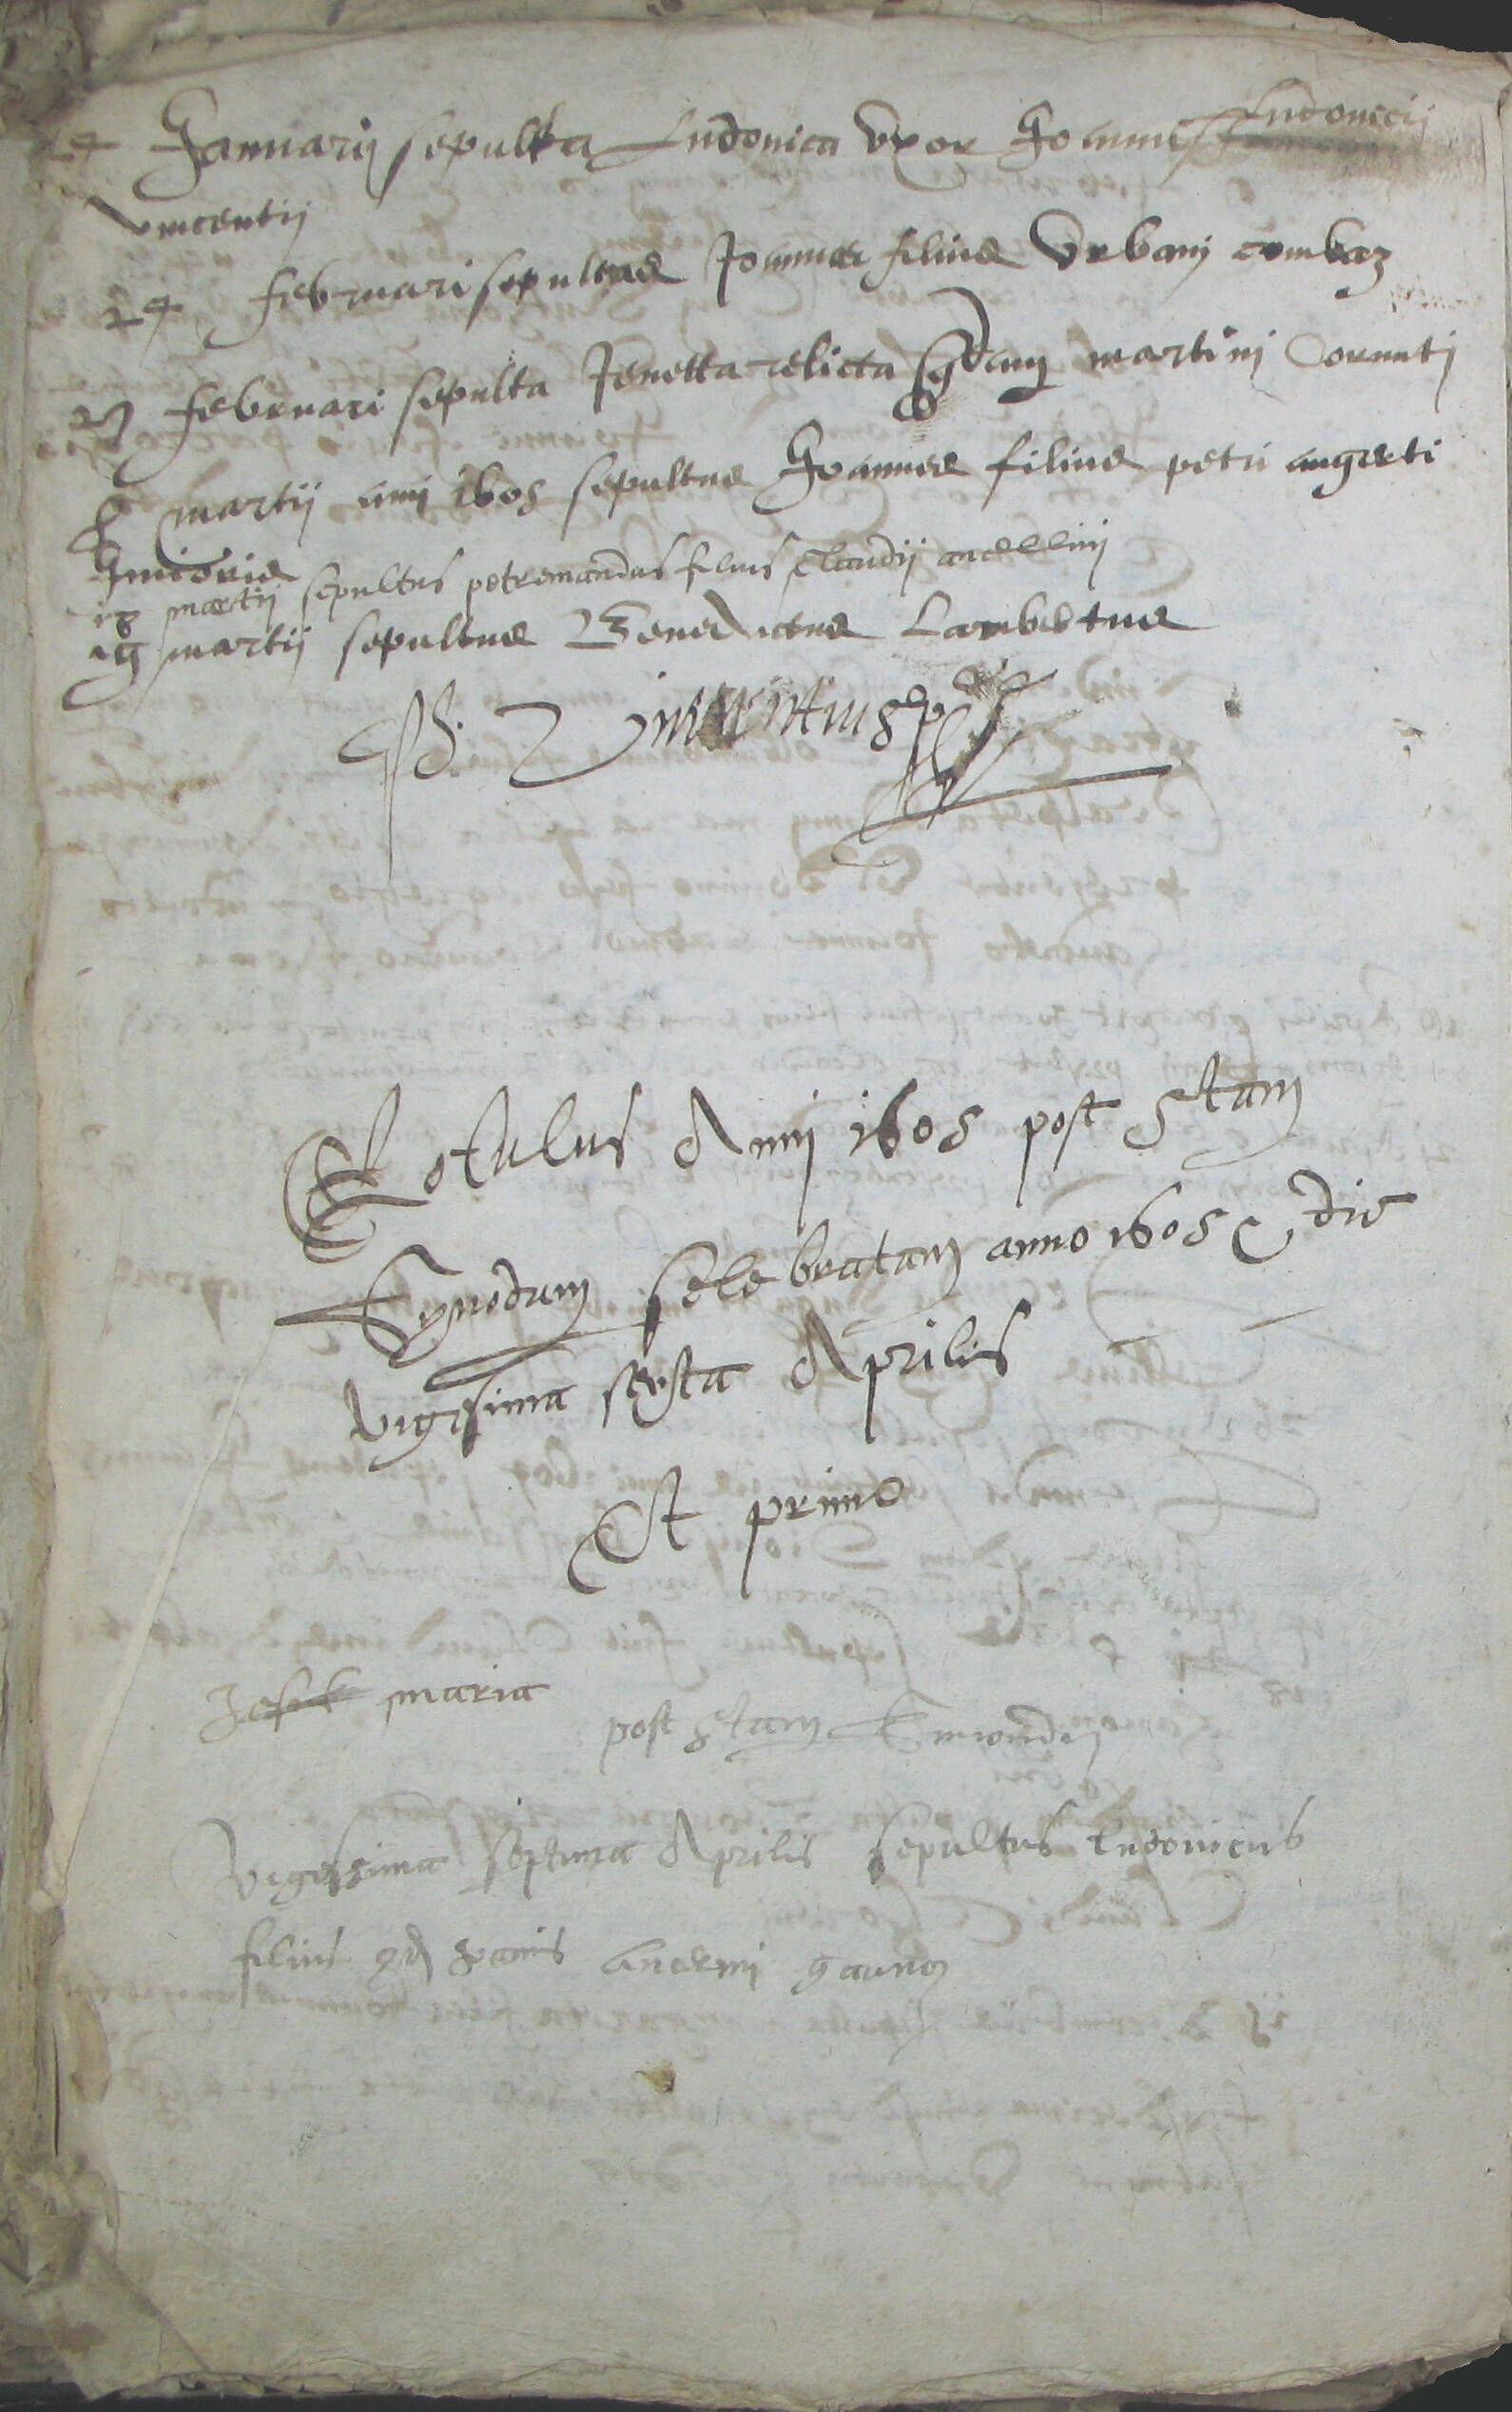 24 Januarii sepulta Ludovica uxor Joannis Ludovicii
vincentii
24 februari sepultus Joannes filius Urbani combaz
27 februari sepulta Jenetta relicta qdam martini Cornuti
8 martii anni 1605 sepultus Joannes filius petri angerti
Junioris
18 martii sepultus petremandus filius Claudii ancellini
19 martii sepultus Benedictus Lambertus
Vincentius
Rotulus Anni 1605 post Stam
Synodum selebratam anno 1605 die
vigesima sexta Aprilis
Et primo
Jesus maria
post Stam
Vigessima septima Aprilis sepultus Ludovicus
filius qd anermi